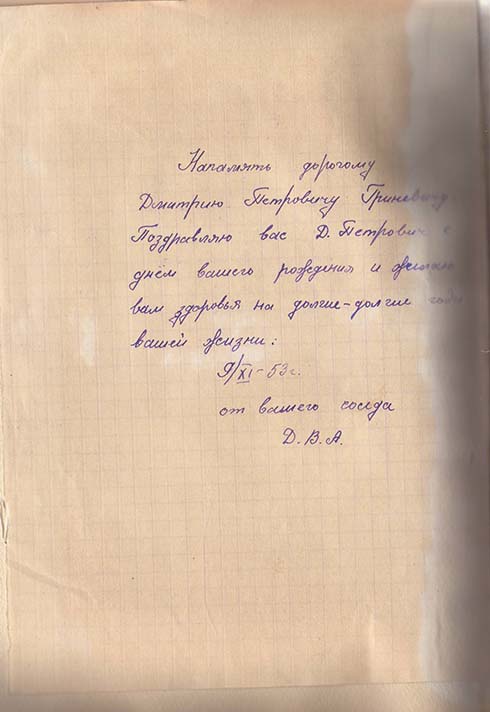 Напамять дорогому
Дмитрию Петровичу Гриневичу.
Поздравляю вас Д. Петрович с
днём вашего рождения и желаю
вам здоровья на долгие-долгие годы
вашей жизни:
9/XI-53г.
от вашего соседа
Д. В. А.